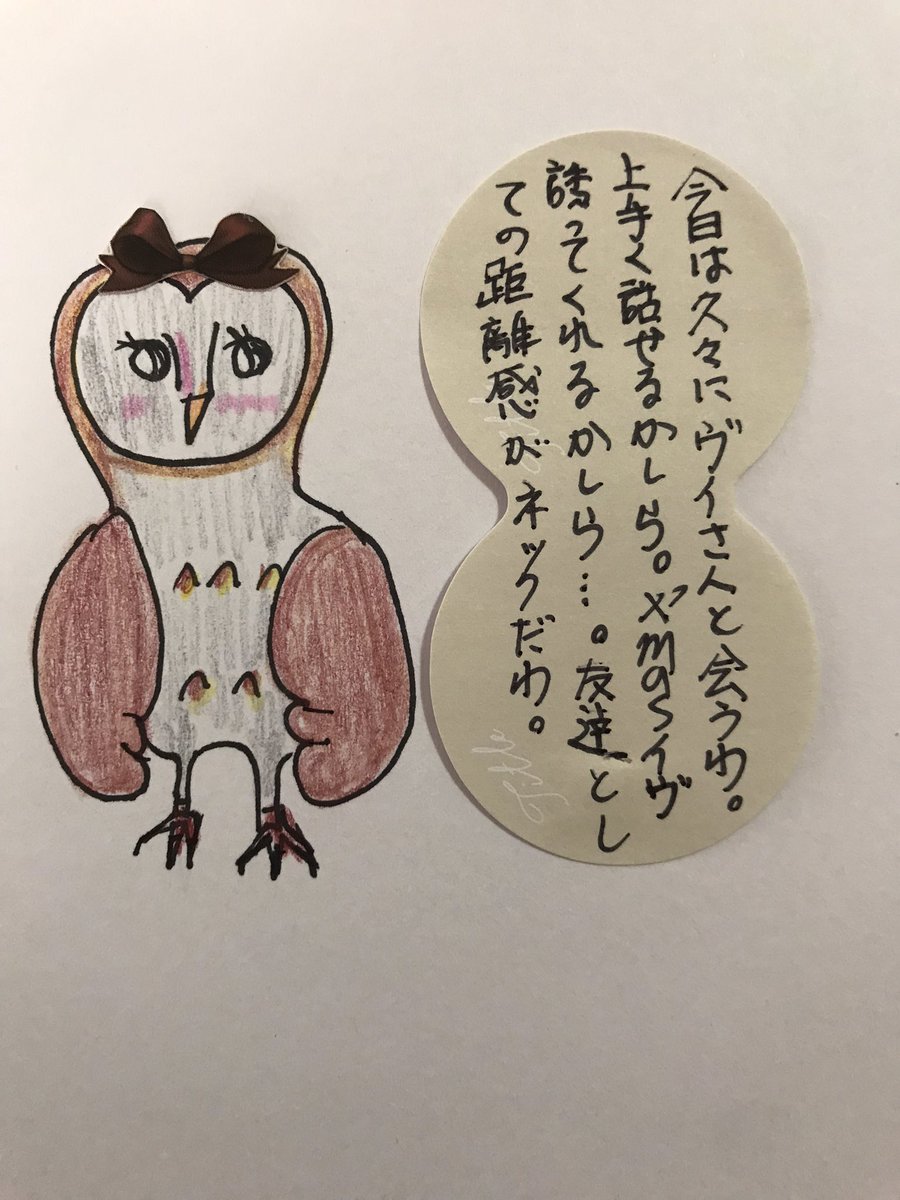 今日は久々にヴィさんと会うわ。
上手く話せるかしら。X'masイヴ
誘ってくれるかしら…。友達とし
ての距離感がネックだわ。
Title